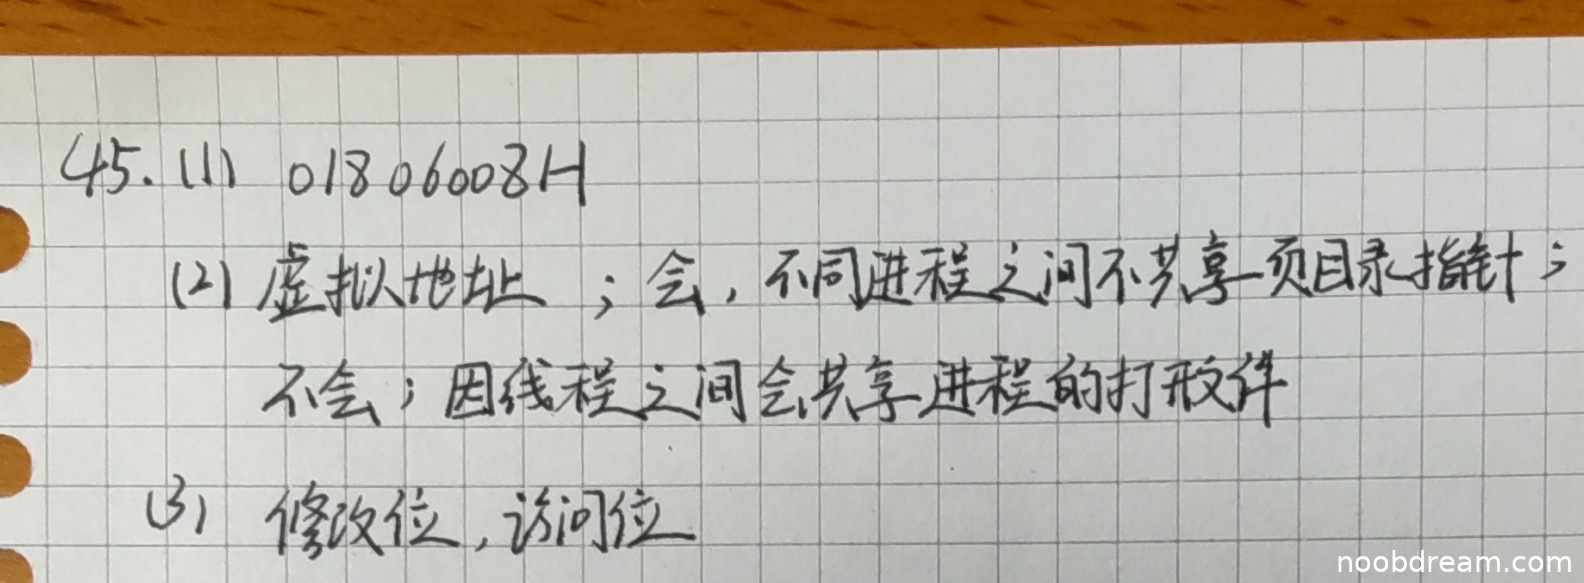 45. (1) 01806008H
(2) 虚拟地址 ; 会, 不同进程之间不共享页目录指针;
不会; 因线程之间会共享进程的打开文件
(3) 修改位, 访问位
noobdream.com